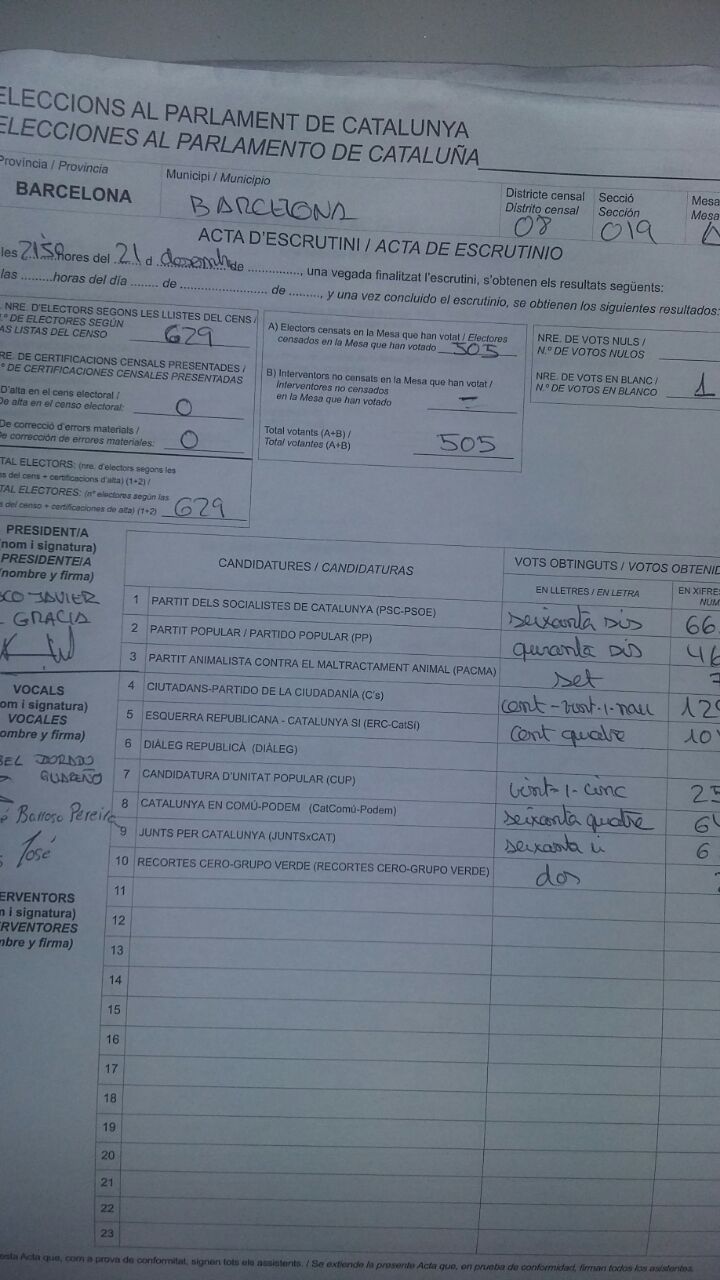 ELECCIONS AL PARLAMENT DE CATALUNYA
ELECCIONES AL PARLAMENTO DE CATALUÑA
Provincia / Provincia
BARCELONA
Municipi / Municipio
BARCELONA
Districte censal
Distrito censal
08
Secció
Sección
019
Mesa
Mesa
ACTA D'ESCRUTINI / ACTA DE ESCRUTINIO
les 21:50 hores del 21 d desembre de ............., una vegada finalitzat l'escrutini, s'obtenen els resultats següents:
las .........horas del día ....... de ....................... de ........, y una vez concluido el escrutinio, se obtienen los siguientes resultados:
NRE. D'ELECTORS SEGONS LES LLISTES DEL CENS /
N.º DE ELECTORES SEGÚN
AS LISTAS DEL CENSO
629
RE. DE CERTIFICACIONS CENSALS PRESENTADES /
º DE CERTIFICACIONES CENSALES PRESENTADAS
D'alta en el cens electoral /
De alta en el censo electoral:
0
De correcció d'errors materials /
De corrección de errores materiales:
0
TAL ELECTORS: (nre. d'electors segons les
s del cens + certificacions d'alta) (1+2) /
TAL ELECTORES: (nº electores según las
s del censo + certificaciones de alta) (1+2)
629
A) Electors censats en la Mesa que han votat / Electores
censados en la Mesa que han votado
505
B) Interventors no censats en la Mesa que han votat /
Interventores no censados
en la Mesa que han votado
-
Total votants (A+B) /
Total votantes (A+B)
505
NRE. DE VOTS NULS /
N.º DE VOTOS NULOS
NRE. DE VOTS EN BLANC /
N.º DE VOTOS EN BLANCO
1
PRESIDENT/A
(nom i signatura)
PRESIDENTE/A
(nombre y firma)
SCO JAVIER
GRACIA
VOCALS
om i signatura)
VOCALES
ombre y firma)
BEL DORADO
GUAREÑO
Barroso Pereira
José
ERVENTORS
m i signatura)
RVENTORES
mbre y firma)
CANDIDATURES / CANDIDATURAS
VOTS OBTINGUTS / VOTOS OBTENID
EN LLETRES / EN LETRA
EN XIFRES
NÚM
1 PARTIT DELS SOCIALISTES DE CATALUNYA (PSC-PSOE) seixanta sis 66
2 PARTIT POPULAR / PARTIDO POPULAR (PP) quranta sis 46
3 PARTIT ANIMALISTA CONTRA EL MALTRACTAMENT ANIMAL (PACMA) set 7
4 CIUTADANS-PARTIDO DE LA CIUDADANÍA (C's) cent-vint-i-nau 129
5 ESQUERRA REPUBLICANA - CATALUNYA SI (ERC-CatSí) cent quatre 10
6 DIÀLEG REPUBLICÀ (DIÀLEG)
7 CANDIDATURA D'UNITAT POPULAR (CUP) vint-i-cinc 25
8 CATALUNYA EN COMÚ-PODEM (CatComú-Podem) seixanta quatre 64
9 JUNTS PER CATALUNYA (JUNTSxCAT) seixanta u 6
10 RECORTES CERO-GRUPO VERDE (RECORTES CERO-GRUPO VERDE) dos
11
12
13
14
15
16
17
18
19
20
21
22
23
esta Acta que, com a prova de conformitat, signen tots els assistents. / Se extiende la presente Acta que, en prueba de conformidad, firman todos los asistentes.